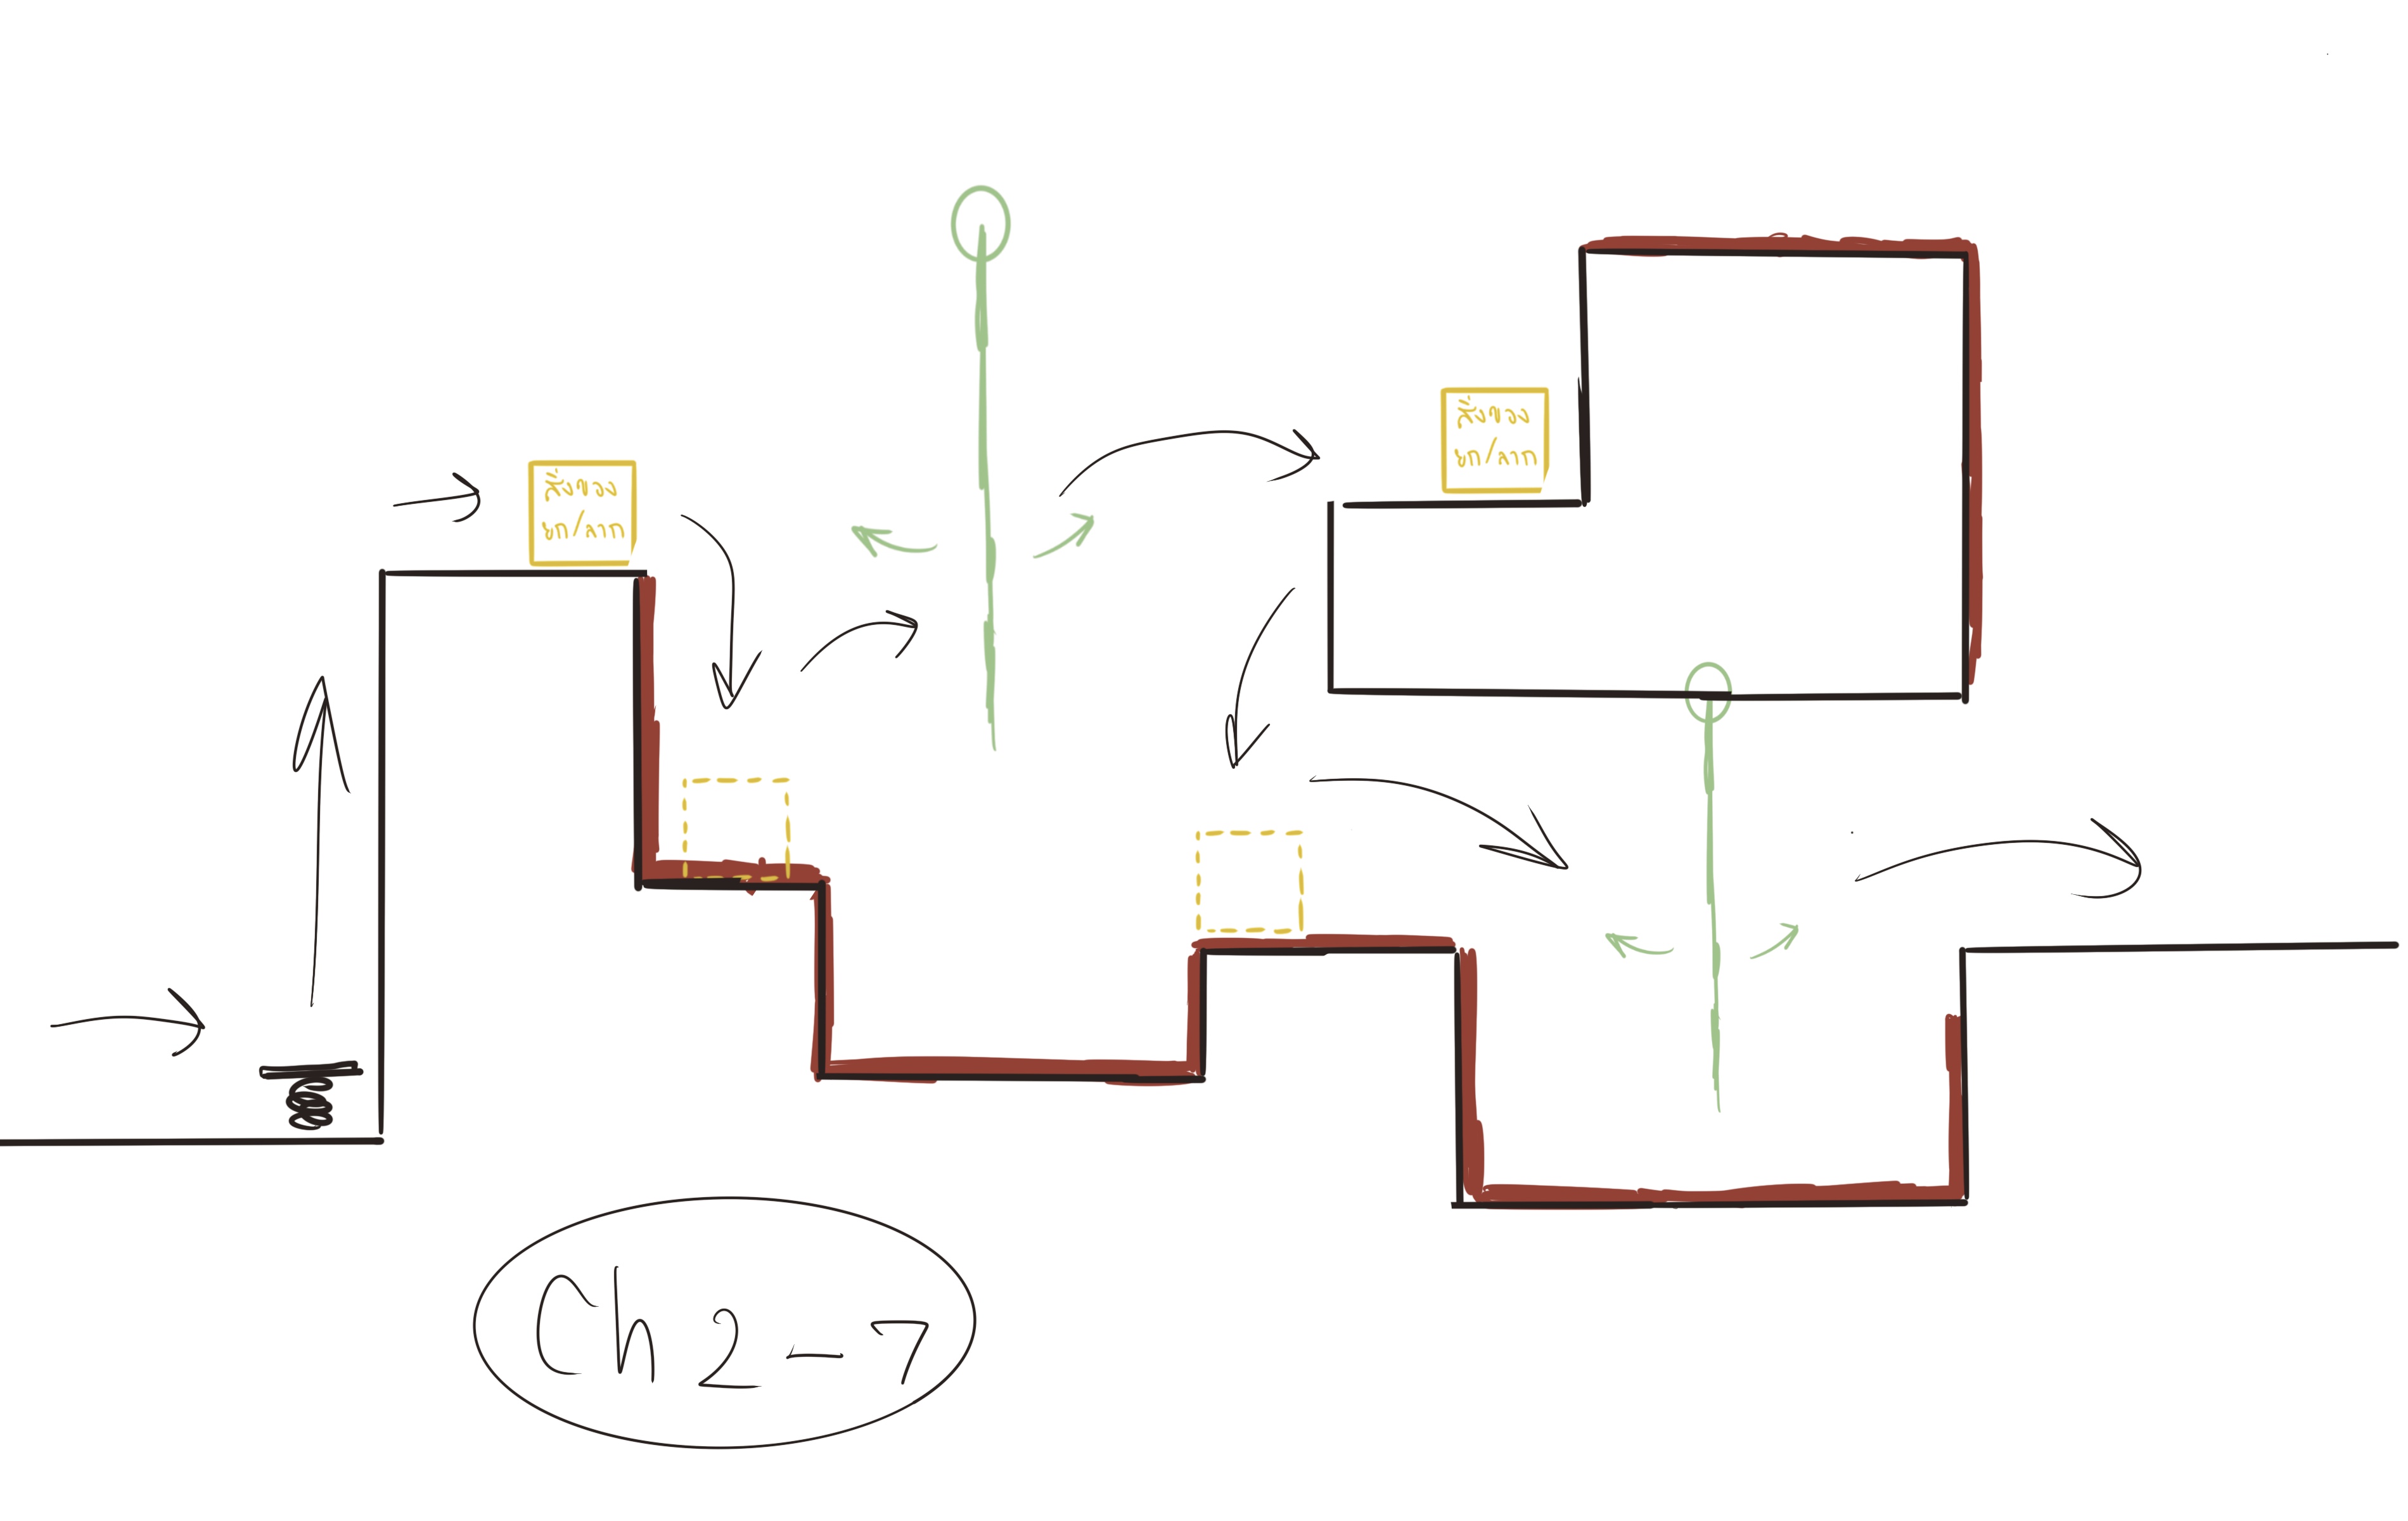 สิ่งของ
ยก/ลาก
สิ่งของ
ยก/ลาก
Ch 2-7